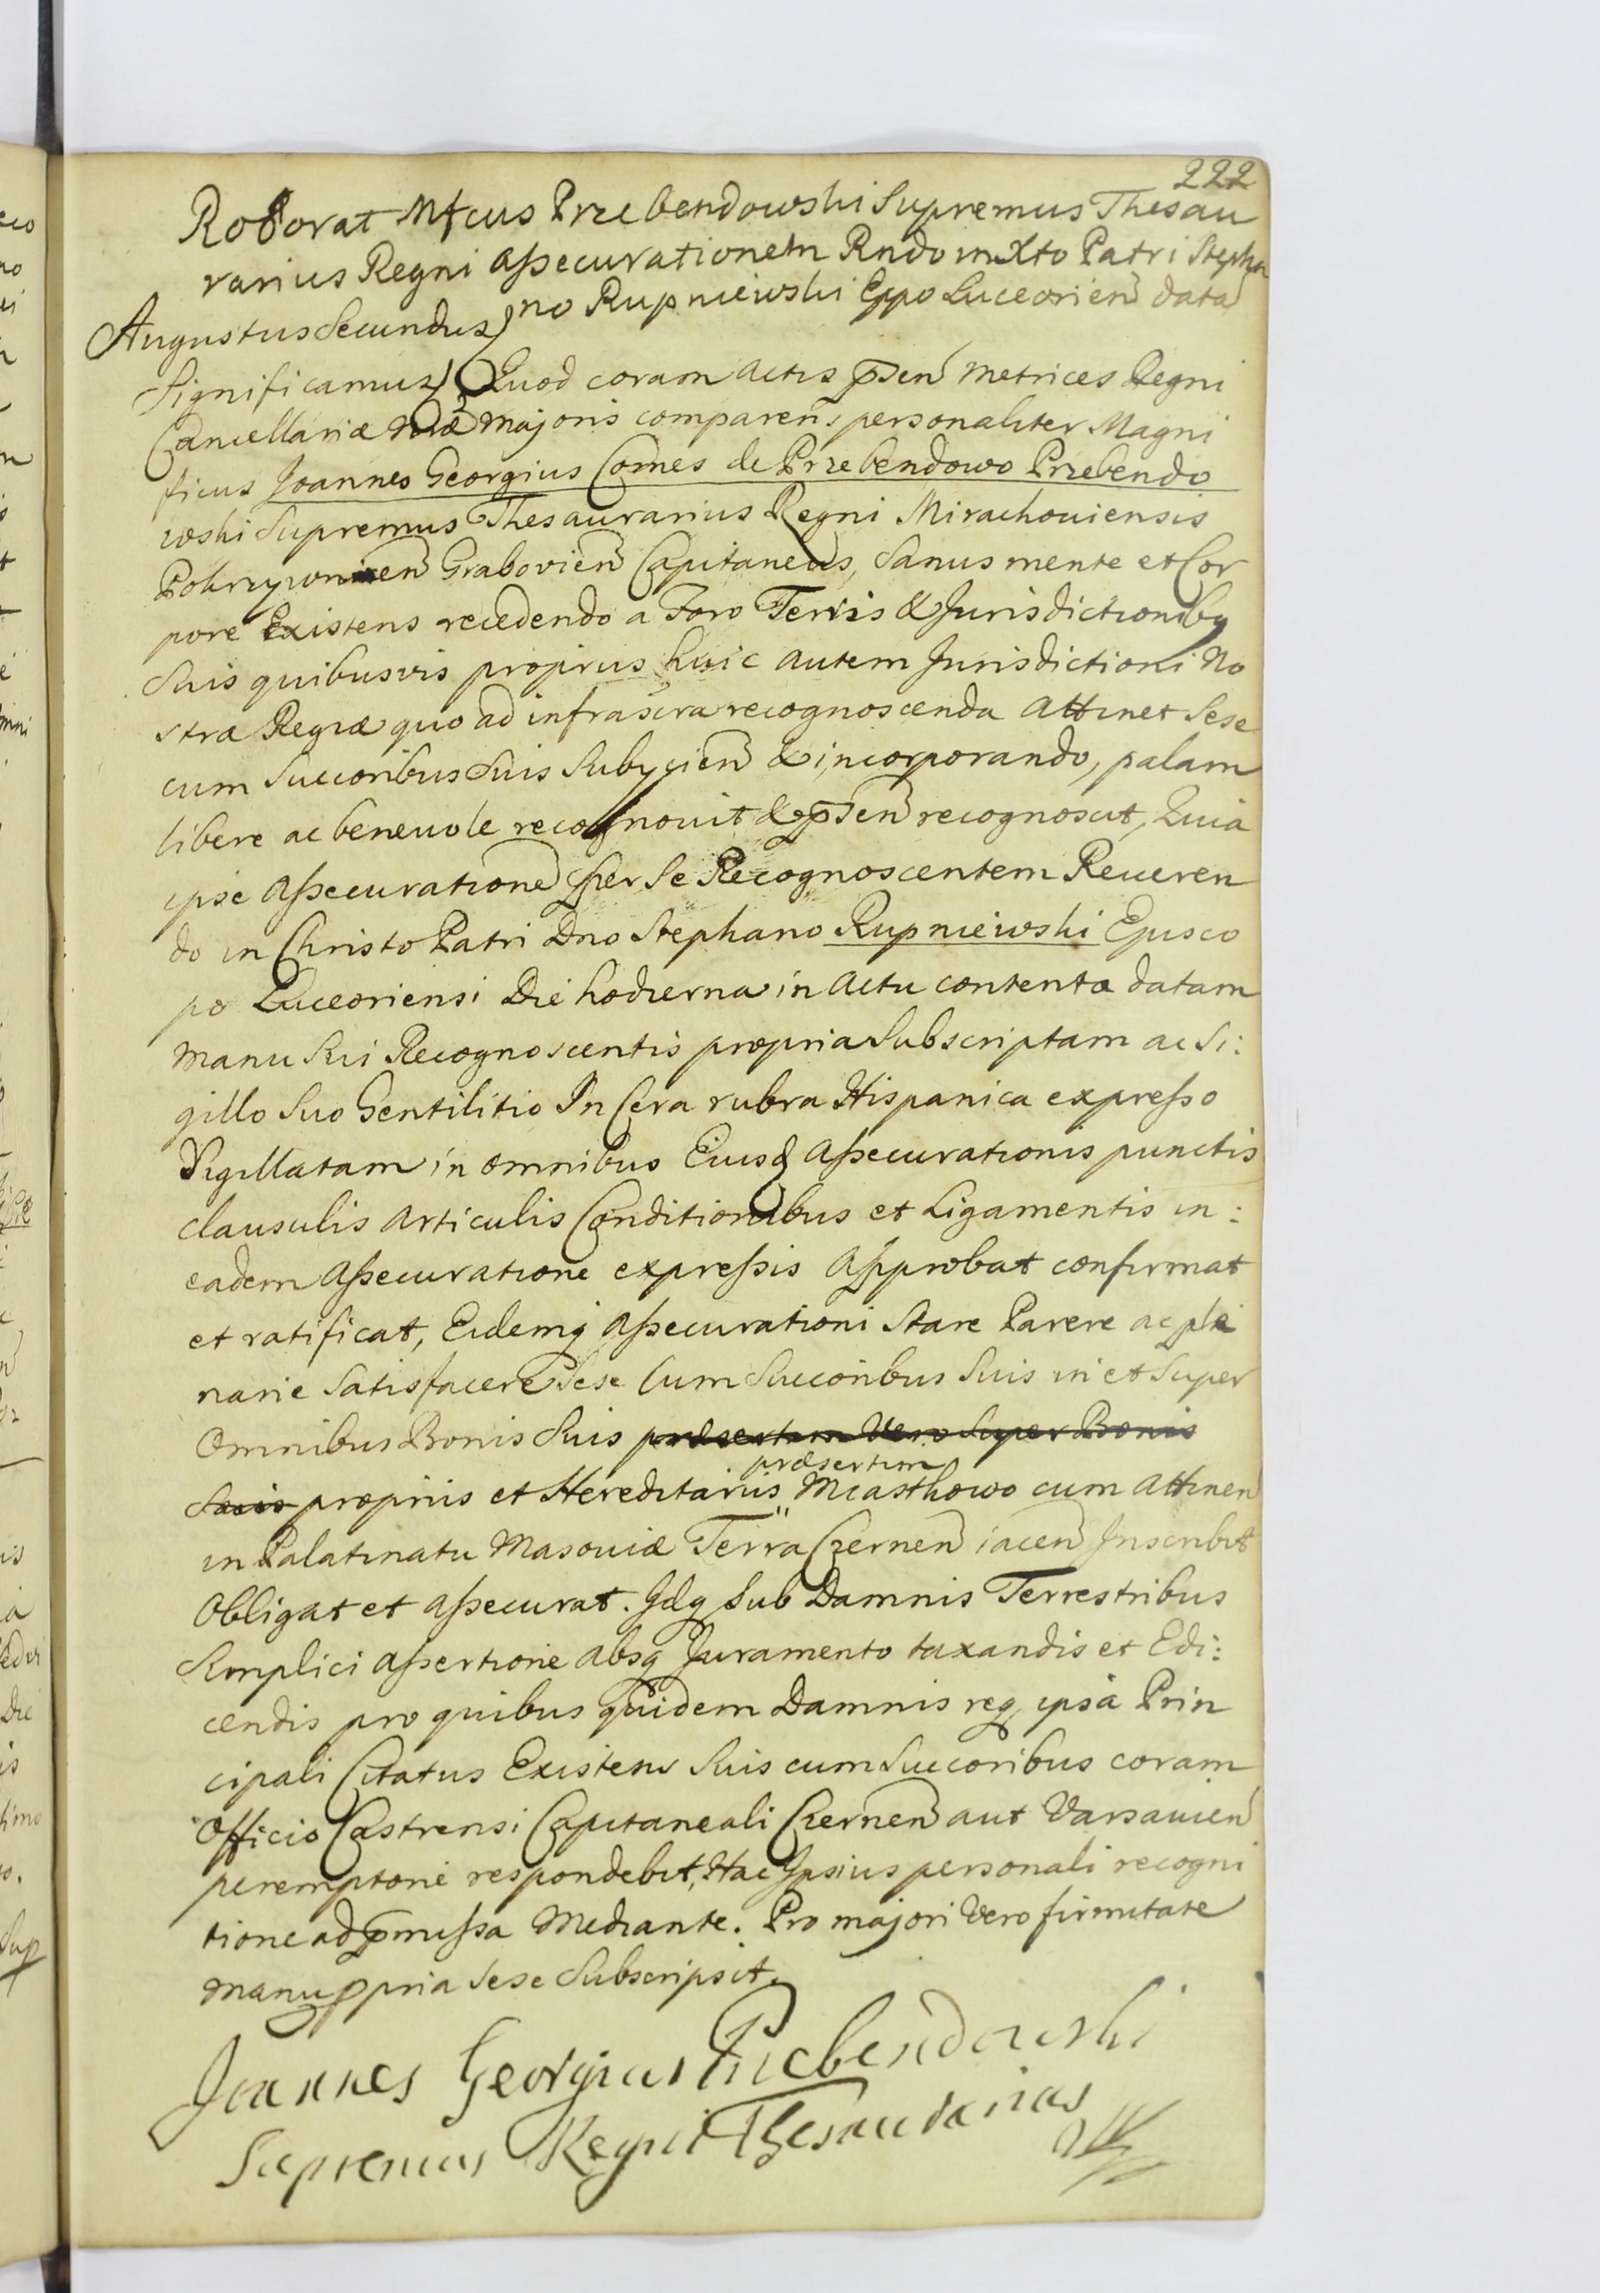 222
Roborat Mfcus Przebendowski Supremus Thesau
rarius Regni Assecurationem Rndo in Xto Patri Stepha
no Rupniewski Eppo Luceorien data
Augustus Secundus
Significamus Quod coram Actis psen Metrices Regni
Cancellariæ Majoris comparens personaliter Magni
ficus Joannes Georgius Comes de Przebendowo Przebendo
wski Supremus Thesaurarius Regni Mirachoviensis
Pokrzywnicen Grabovien Capitaneus, Sanus mente et Cor
pore Existens recedendo a Foro Terris & Jurisdictionibq
Suis quibusvis propriis huic autem Jurisdictioni No
stræ Regiæ quo ad infrascra recognoscenda Attinet Sese
cum Succoribus Suis Subycien & incorporando, palam
libere ac benevole recognovit & psen recognoscit, Quia
ipse Assecuratione per Se Recognoscentem Reveren
do in Christo Patri Dno Stephano Rupniewski Episco
po Luceoriensi Die hodierna in Actu contenta datam
Manu Sui Recognoscentis propria Subscriptam ac Si:
gillo Suo Gentilitio In Cera rubra Hispanica expresso
Sigillatam in omnibus Eiusd Assecurationis punctis
clausulis Articulis Conditionibus et Ligamentis in:
eadem Assecuratione expressis Approbat confirmat
et ratificat, Eidemq Assecurationi Stare Parere ac ple
narie Satisfacere Sese Cum Succoribus Suis in et Super
Omnibus Bonis Suis præsertim Vero Super Bonis
præsertim
Suis propriis et Hereditariis Miastkowo cum Attinen
in Palatinatu Masoviæ Terra Czernen iacen Inscribit
Obligat et Assecurat. Idq Sub Damnis Terrestribus
Simplici Assertione Absq Juramento taxandis et Edi:
cendis pro quibus quidem Damnis req ipsa Prin
cipali Citatus Existens Suis cum Succoribus coram
Officio Castrensi Capitaneali Czernen aut Varsavien
peremptorie respondebit, Hac Ipsius personali recogni
tione ad pmissa Mediante. Pro majori Vero firmitate
Manu ppria Sese Subscripsit.
Joannes Georgius Przebendowski
Supremus Regni Thesaurarius